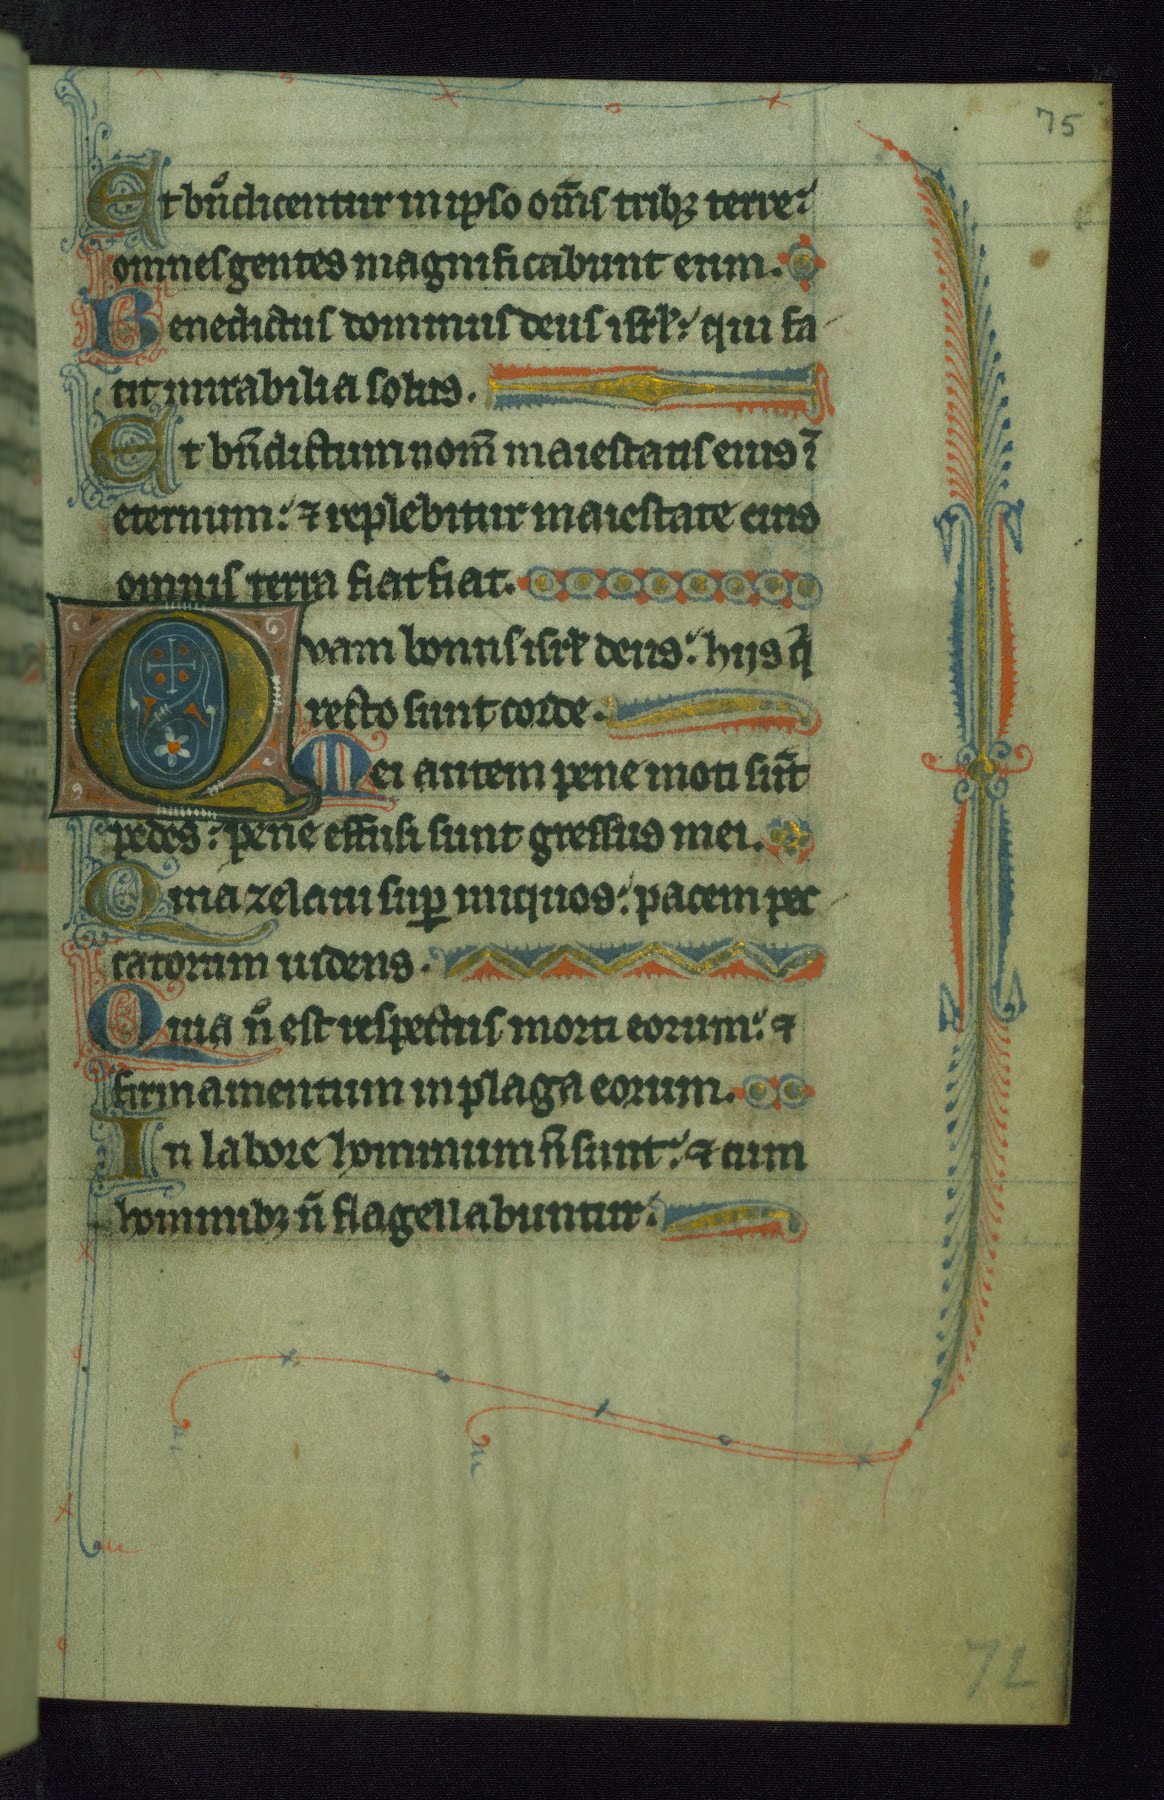 75
Et bn̄dicentur in ipso om̄s tribꝫ terre:
omnes gentes magnificabunt eum.
Benedictus dominus deus isrl̄: qui fa
cit mirabilia solus.
Et bn̄dictum nom̄ maiestatis eius ī
eternum: ⁊ replebitur maiestate eius
omnis terra fiat fiat.
Quam bonus isrl̄ deus: hijs q̄
recto sunt corde.
Mei autem pene moti sūt
pedes: pene effusi sunt gressus mei.
Quia zelaui suꝑ iniquos: pacem pec
catorum uidens.
Quia n̄ est respectus morti eorum: ⁊
firmamentum in plaga eorum.
In labore hominum n̄ sunt: ⁊ cum
hominibꝫ n̄ flagellabuntur:
72